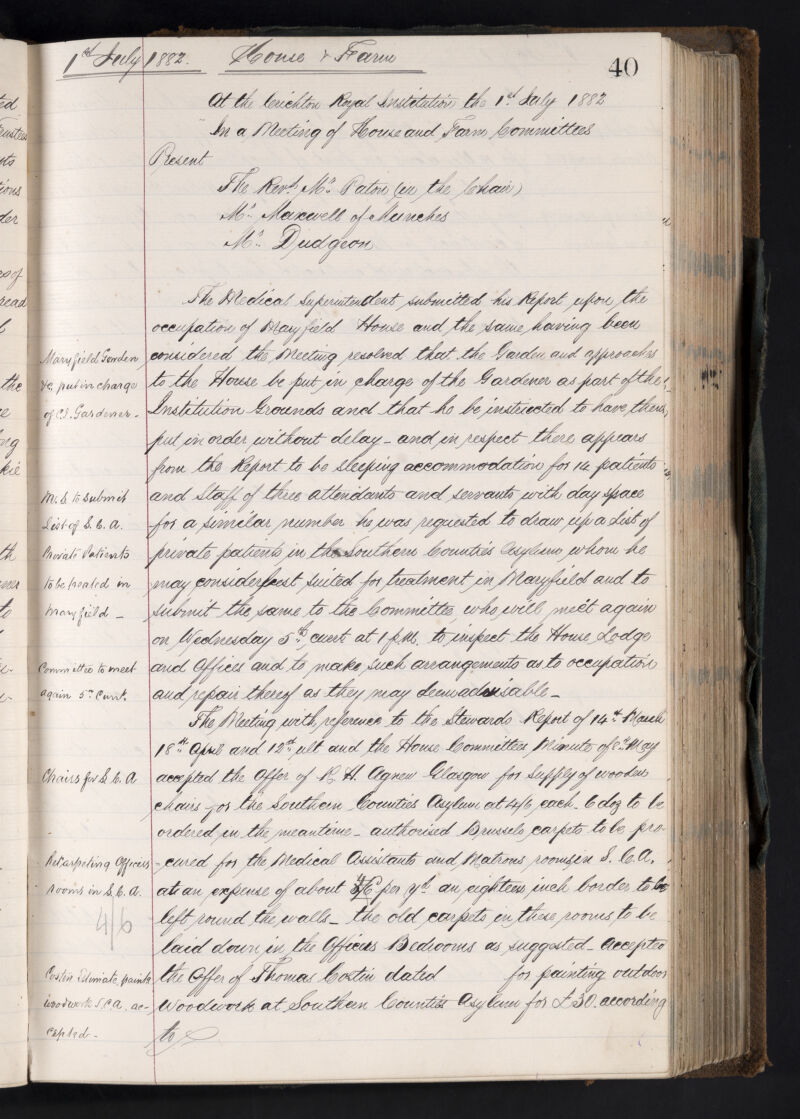 1st July 1882. House & Farm
40
At the Crichton Royal Institution the 1st July 1882
In a Meeting of House and Farm Committees
Present
The Revd. Mr. Paton (in the Chair)
Mr. Maxwell of Munches
Mr. Dudgeon
The Medical Superintendent submitted his Report upon the
occupation of Mayfield House and the same having been
considered the Meeting resolved that the Garden and approaches
to the House be put in charge of the Gardener as part of the
Institution Grounds and that he be instructed to have these
put in order without delay - and in respect there appears
from the Report to be sleeping accommodation for 14 patients
and Staff of three attendants and servants with day space
for a similar number he was requested to draw up a List of
private patients in the Southern Counties Asylum whom he
may consider best suited for treatment in Maryfield and to
submit the same to the Committee who will meet again
on Wednesday 5th curt at 1 P.M. to inspect the House Lodge
and Offices and to make such arrangements as to occupation
and repair thereof as they may deem advisable -
The Meeting with reference to the Stewards Report of 14th March
18th April and 12th ult and the House Committees Minute of 8th May
accepted the Offer of R. H. Agnew Glasgow for Supply of wooden
chairs for the Southern Counties Asylum at 4/6 each - 6 doz to be
ordered in the meantime - authorised Brussels carpets to be pro-
-cured for the Medical Assistants and Matrons rooms in S. C. A.
at an expense of about 4/6 per yd. an eighteen inch border to be
left round the walls - the old carpets in these rooms to be
laid down in the Officers Bedrooms as suggested - accepted
the Offer of Thomas Costin dated for painting outdoor
Woodwork at Southern Counties Asylum for £30. according
to
Maryfield Garden
&c. put in charge
of C.I. Gardener -
M. S. to submit
List of S. C. A.
Private Patients
to be treated in
Maryfield -
Committee to meet
again 5th Curt.
Chairs for S. C. A
Recarpeting Officers
rooms in S. C. A.
4/6
Costin Estimate paint
woodwork S.C.A. ac-
cepted -